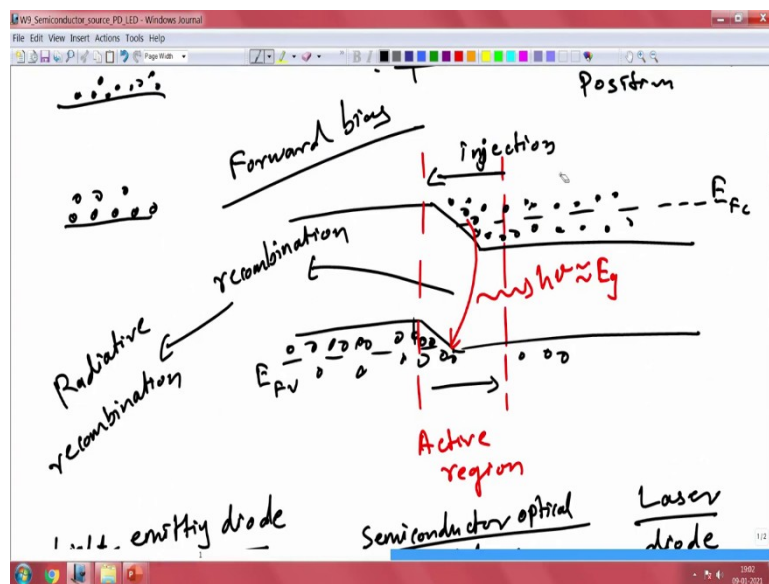 W9_Semiconductor_source_PD_LED - Windows Journal
File Edit View Insert Actions Tools Help
Page Width
Position
Forward bias
injection
E_Fc
recombination
hν ≈ Eg
Radiative
recombination
E_Fv
Active
region
Light emittiy diode
Semiconductor optical
Laser
diode
1
1/2
19:02
09-01-2021